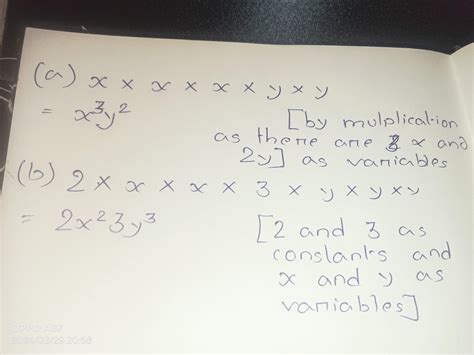 (a) x × x × x × y × y
= x³y² [by mulplication
as there are 3 x and
2y] as variables
(b) 2 × x × x × 3 × y × y × y
= 2x²3y³ [2 and 3 as
constants and
x and y as
variables]
2024/03/29 20:58